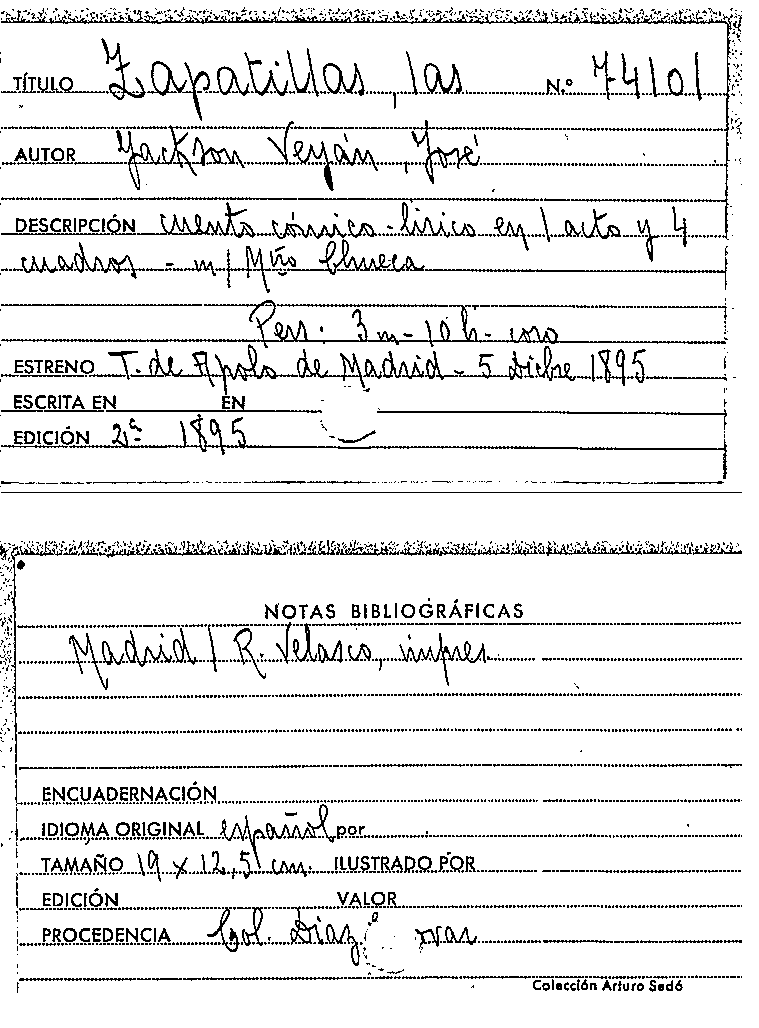 TÍTULO Zapatillas, las N.º 74101
AUTOR Jackson Veyán, José
DESCRIPCIÓN cuento cómico-lírico en 1 acto y 4
cuadros - m/ Mtro Chueca
Pers: 3 m - 10 h - coro
ESTRENO T. de Apolo de Madrid - 5 Dicbre 1895
ESCRITA EN EN
EDICIÓN 2ª 1895
NOTAS BIBLIOGRÁFICAS
Madrid / R. Velasco, impres.
ENCUADERNACIÓN
IDIOMA ORIGINAL español por
TAMAÑO 19 x 12,5 cm. ILUSTRADO POR
EDICIÓN VALOR
PROCEDENCIA Col. Díaz
Colección Arturo Sedó